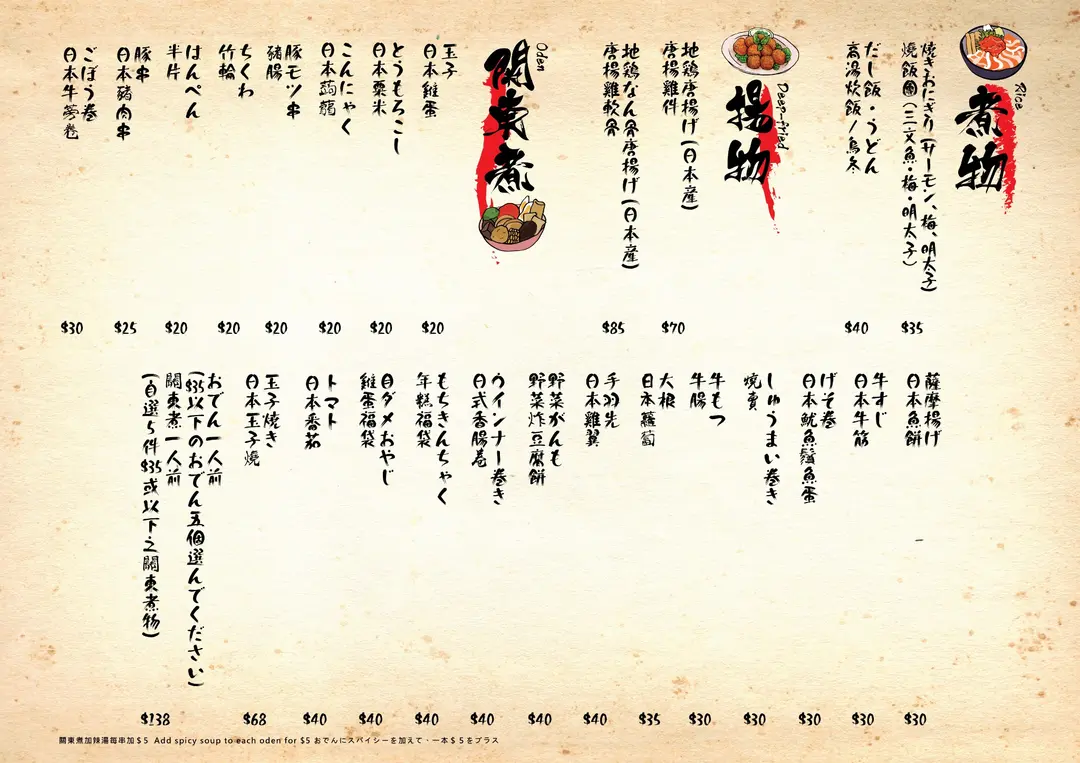 煮物
Rice
焼きおにぎり(サーモン、梅、明太子)
燒飯團(三文魚・梅・明太子)
$35
だし飯・うどん
高湯炊飯/烏冬
$40
揚物
Deep-fried
地鶏唐揚げ(日本産)
唐揚雞件
$70
地鶏なん骨唐揚げ(日本産)
唐揚雞軟骨
$85
關東煮
Oden
玉子
日本雞蛋
$20
とうもろこし
日本粟米
$20
こんにゃく
日本蒟蒻
$20
豚モツ串
豬腸
$20
ちくわ
竹輪
$20
はんぺん
半片
$20
豚串
日本豬肉串
$25
ごぼう巻
日本牛蒡卷
$30
薩摩揚げ
日本魚餅
$30
牛すじ
日本牛筋
$30
げそ巻
日本魷魚鬚魚蛋
$30
しゅうまい巻き
燒賣
$30
牛もつ
牛腸
$30
大根
日本蘿蔔
$35
手羽先
日本雞翼
$40
野菜がんも
野菜炸豆腐餅
$40
ウインナー巻き
日式香腸卷
$40
もちきんちゃく
年糕福袋
$40
自ダメおやじ
雞蛋福袋
$40
トマト
日本番茄
$40
玉子焼き
日本玉子燒
$68
おでん一人前
($35以下のおでん五個選んでください)
關東煮一人前
(自選5件$35或以下之關東煮物)
$138
關東煮加辣湯每串加$5 Add spicy soup to each oden for $5 おでんにスパイシーを加えて・一本$5をプラス